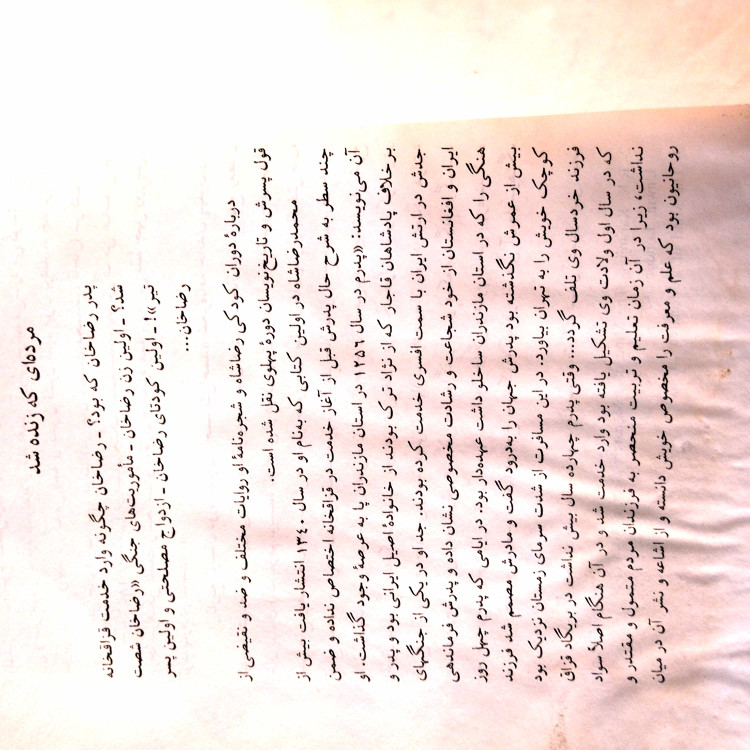 مرده‌ای که زنده شد
پدر رضاخان که بود؟ ـ رضاخان چگونه وارد خدمت قزاقخانه
شد؟ ـ اولین زن رضاخان ـ مأموریت‌های جنگی «رضاخان شصت
تیر»! ـ اولین کودتای رضاخان ـ ازدواج مصلحتی و اولین پسر
رضاخان...
دربارهٔ دوران کودکی رضاشاه و شجره‌نامهٔ او روایات مختلف و ضد و نقیضی از
قول پسرش و تاریخ‌نویسان دورهٔ پهلوی نقل شده است.
محمدرضاشاه در اولین کتابی که به‌نام او در سال ۱۳۴۰ انتشار یافت بیش از
چند سطر به شرح حال پدرش قبل از آغاز خدمت در قزاقخانه اختصاص نداده و ضمن
آن می‌نویسد: «پدرم در سال ۱۲۵۶ در استان مازندران پا به عرصهٔ وجود گذاشت. او
برخلاف پادشاهان قاجار که از نژاد ترک بودند از خانوادهٔ اصیل ایرانی بود و پدر و
جدش در ارتش ایران با سمت افسری خدمت کرده بودند. جد او در یکی از جنگهای
ایران و افغانستان از خود شجاعت و رشادت مخصوصی نشان داده و پدرش فرماندهی
هنگی را که در استان مازندران ساخلو داشت عهده‌دار بود. در ایامی که پدرم چهل روز
بیش از عمرش نگذشته بود پدرش جهان را بدرود گفت و مادرش مصمم شد فرزند
کوچک خویش را به تهران بیاورد. در این مسافرت از شدت سرمای زمستان نزدیک بود
فرزند خردسال وی تلف گردد... وقتی پدرم چهارده سال بیش نداشت در بریگاد قزاق
که در سال اول ولادت وی تشکیل یافته بود وارد خدمت شد و در آن هنگام اصلاً سواد
نداشت، زیرا در آن زمان تعلیم و تربیت منحصر به فرزندان مردم متمول و مقتدر و
روحانیون بود که علم و معرفت را مخصوص خویش دانسته و از اشاعه و نشر آن در میان